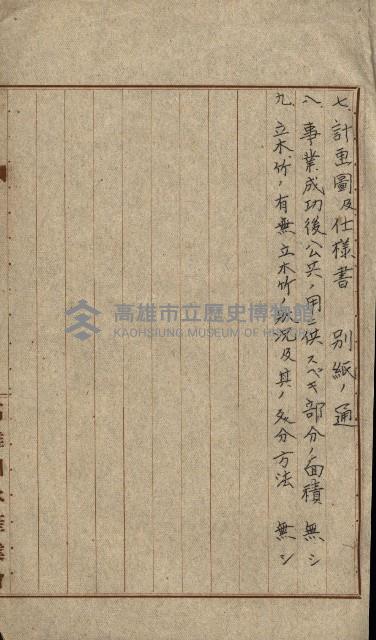 七、計画圖及仕様書 別紙ノ通
八、事業成功後公共ノ用ニ供スベキ部分ノ面積 無シ
九、立木竹ノ有無立木竹ノ状况及其ノ処分方法 無シ
高雄市立歷史博物館
KAOHSIUNG MUSEUM OF HISTORY